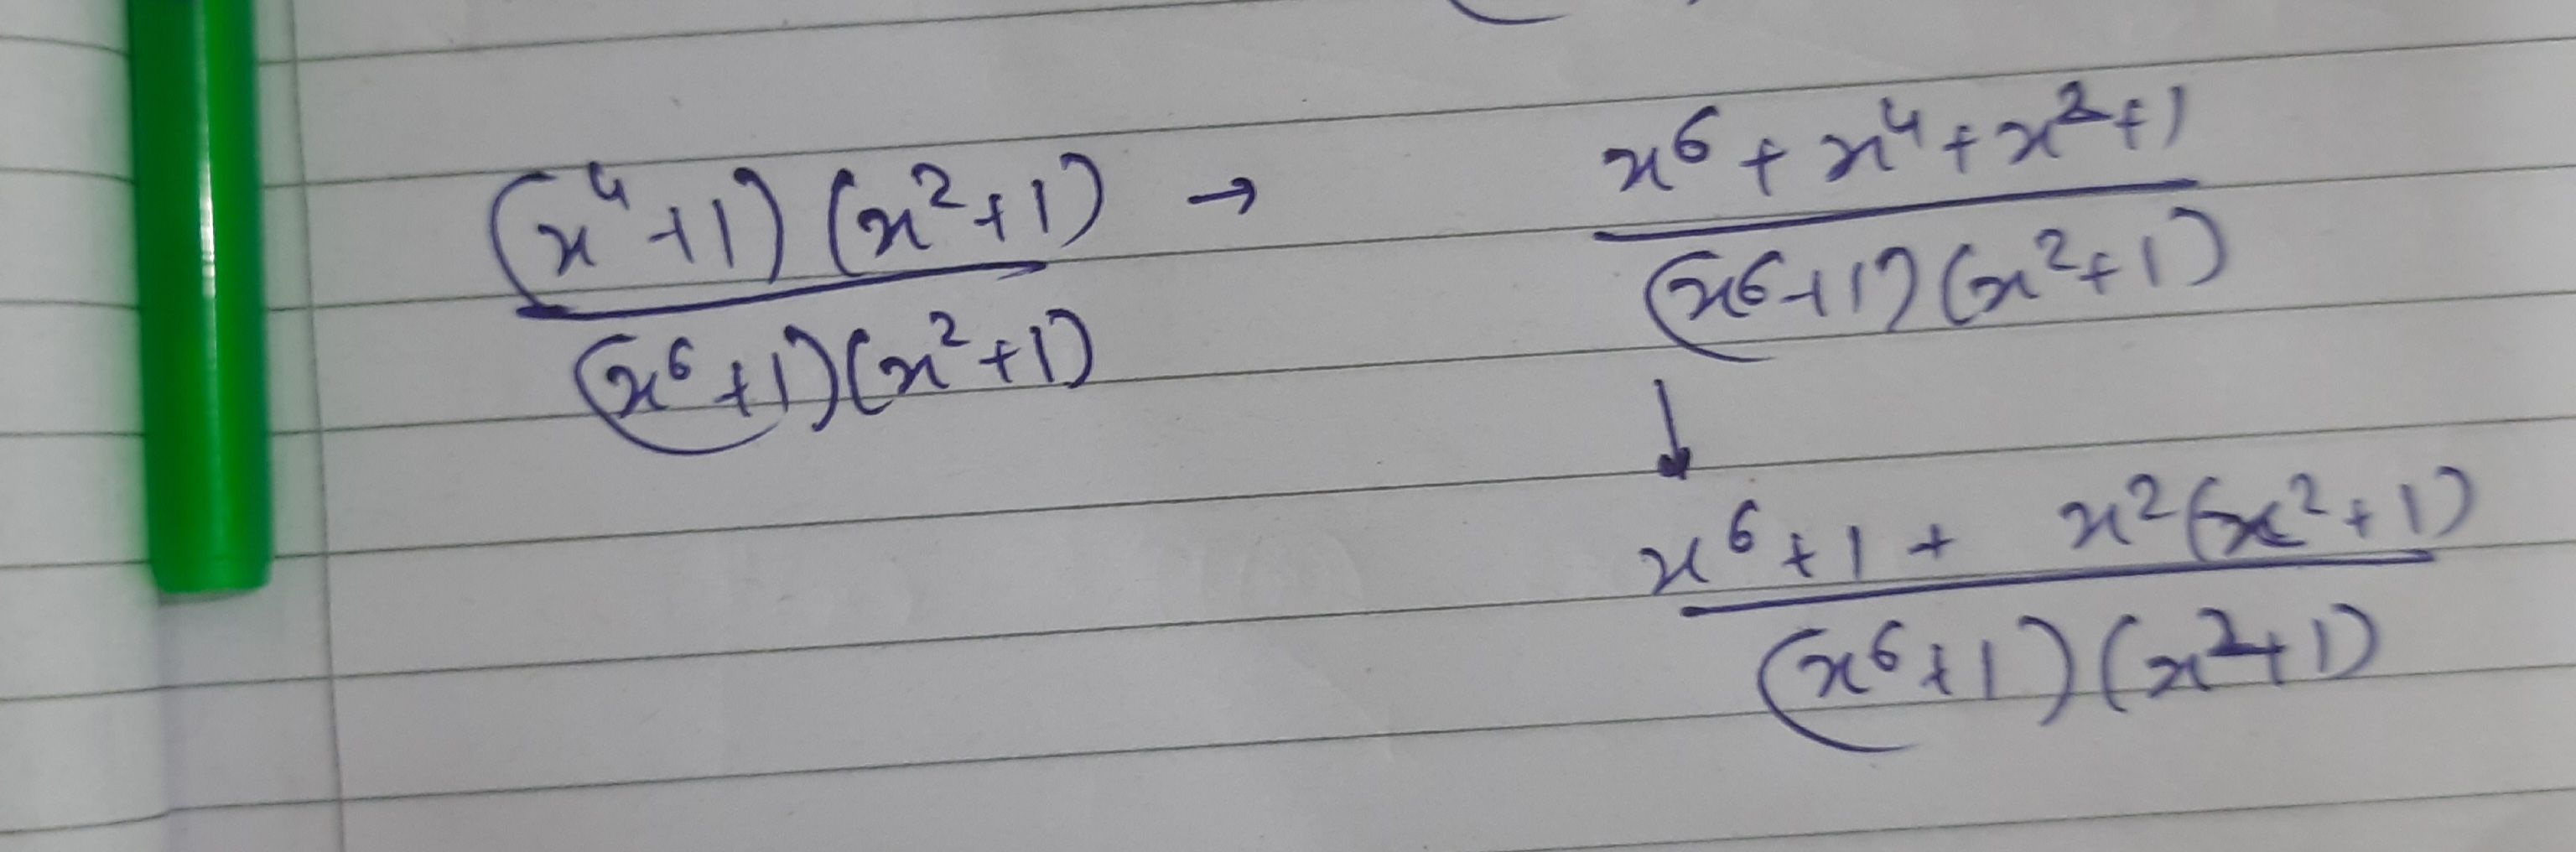 (x⁴+1)(x²+1) / (x⁶+1)(x²+1) → x⁶+x⁴+x²+1 / (x⁶+1)(x²+1)
↓
x⁶+1+ x²(x²+1) / (x⁶+1)(x²+1)